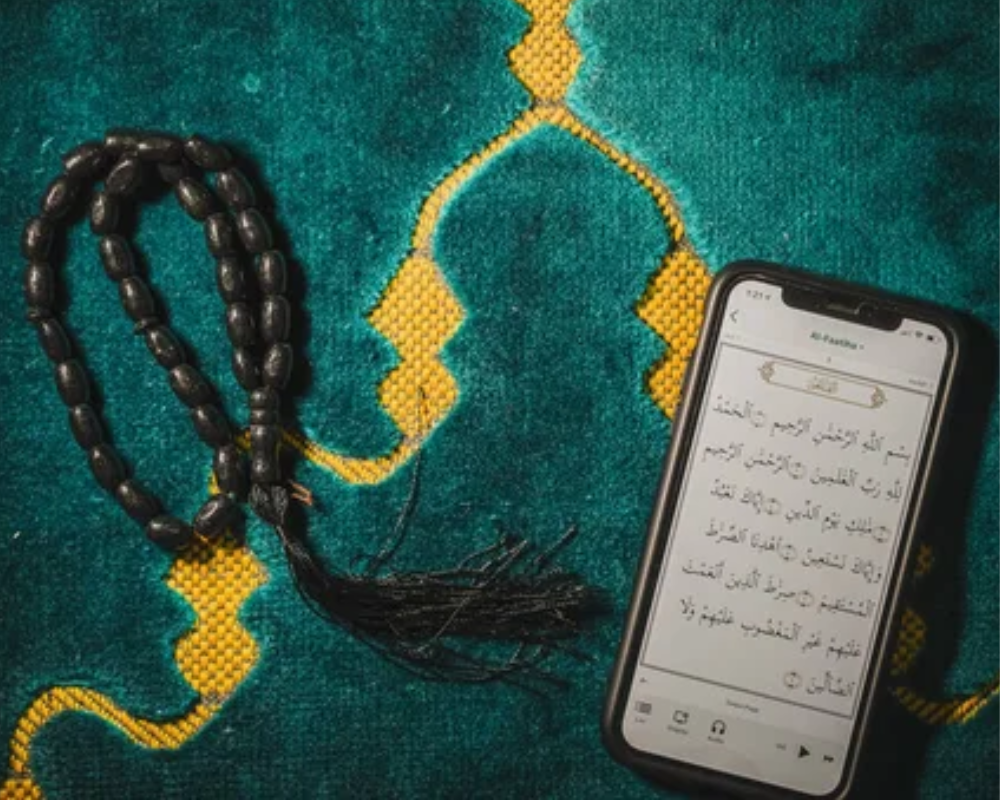 1:21
Al-Faatiha
بِسْمِ ٱللَّهِ ٱلرَّحْمَٰنِ ٱلرَّحِيمِ ۝ ٱلْحَمْدُ
لِلَّهِ رَبِّ ٱلْعَٰلَمِينَ ۝ ٱلرَّحْمَٰنِ ٱلرَّحِيمِ
۝ مَٰلِكِ يَوْمِ ٱلدِّينِ ۝ إِيَّاكَ نَعْبُدُ
وَإِيَّاكَ نَسْتَعِينُ ۝ ٱهْدِنَا ٱلصِّرَٰطَ
ٱلْمُسْتَقِيمَ ۝ صِرَٰطَ ٱلَّذِينَ أَنْعَمْتَ
عَلَيْهِمْ غَيْرِ ٱلْمَغْضُوبِ عَلَيْهِمْ وَلَا
ٱلضَّآلِّينَ ۝